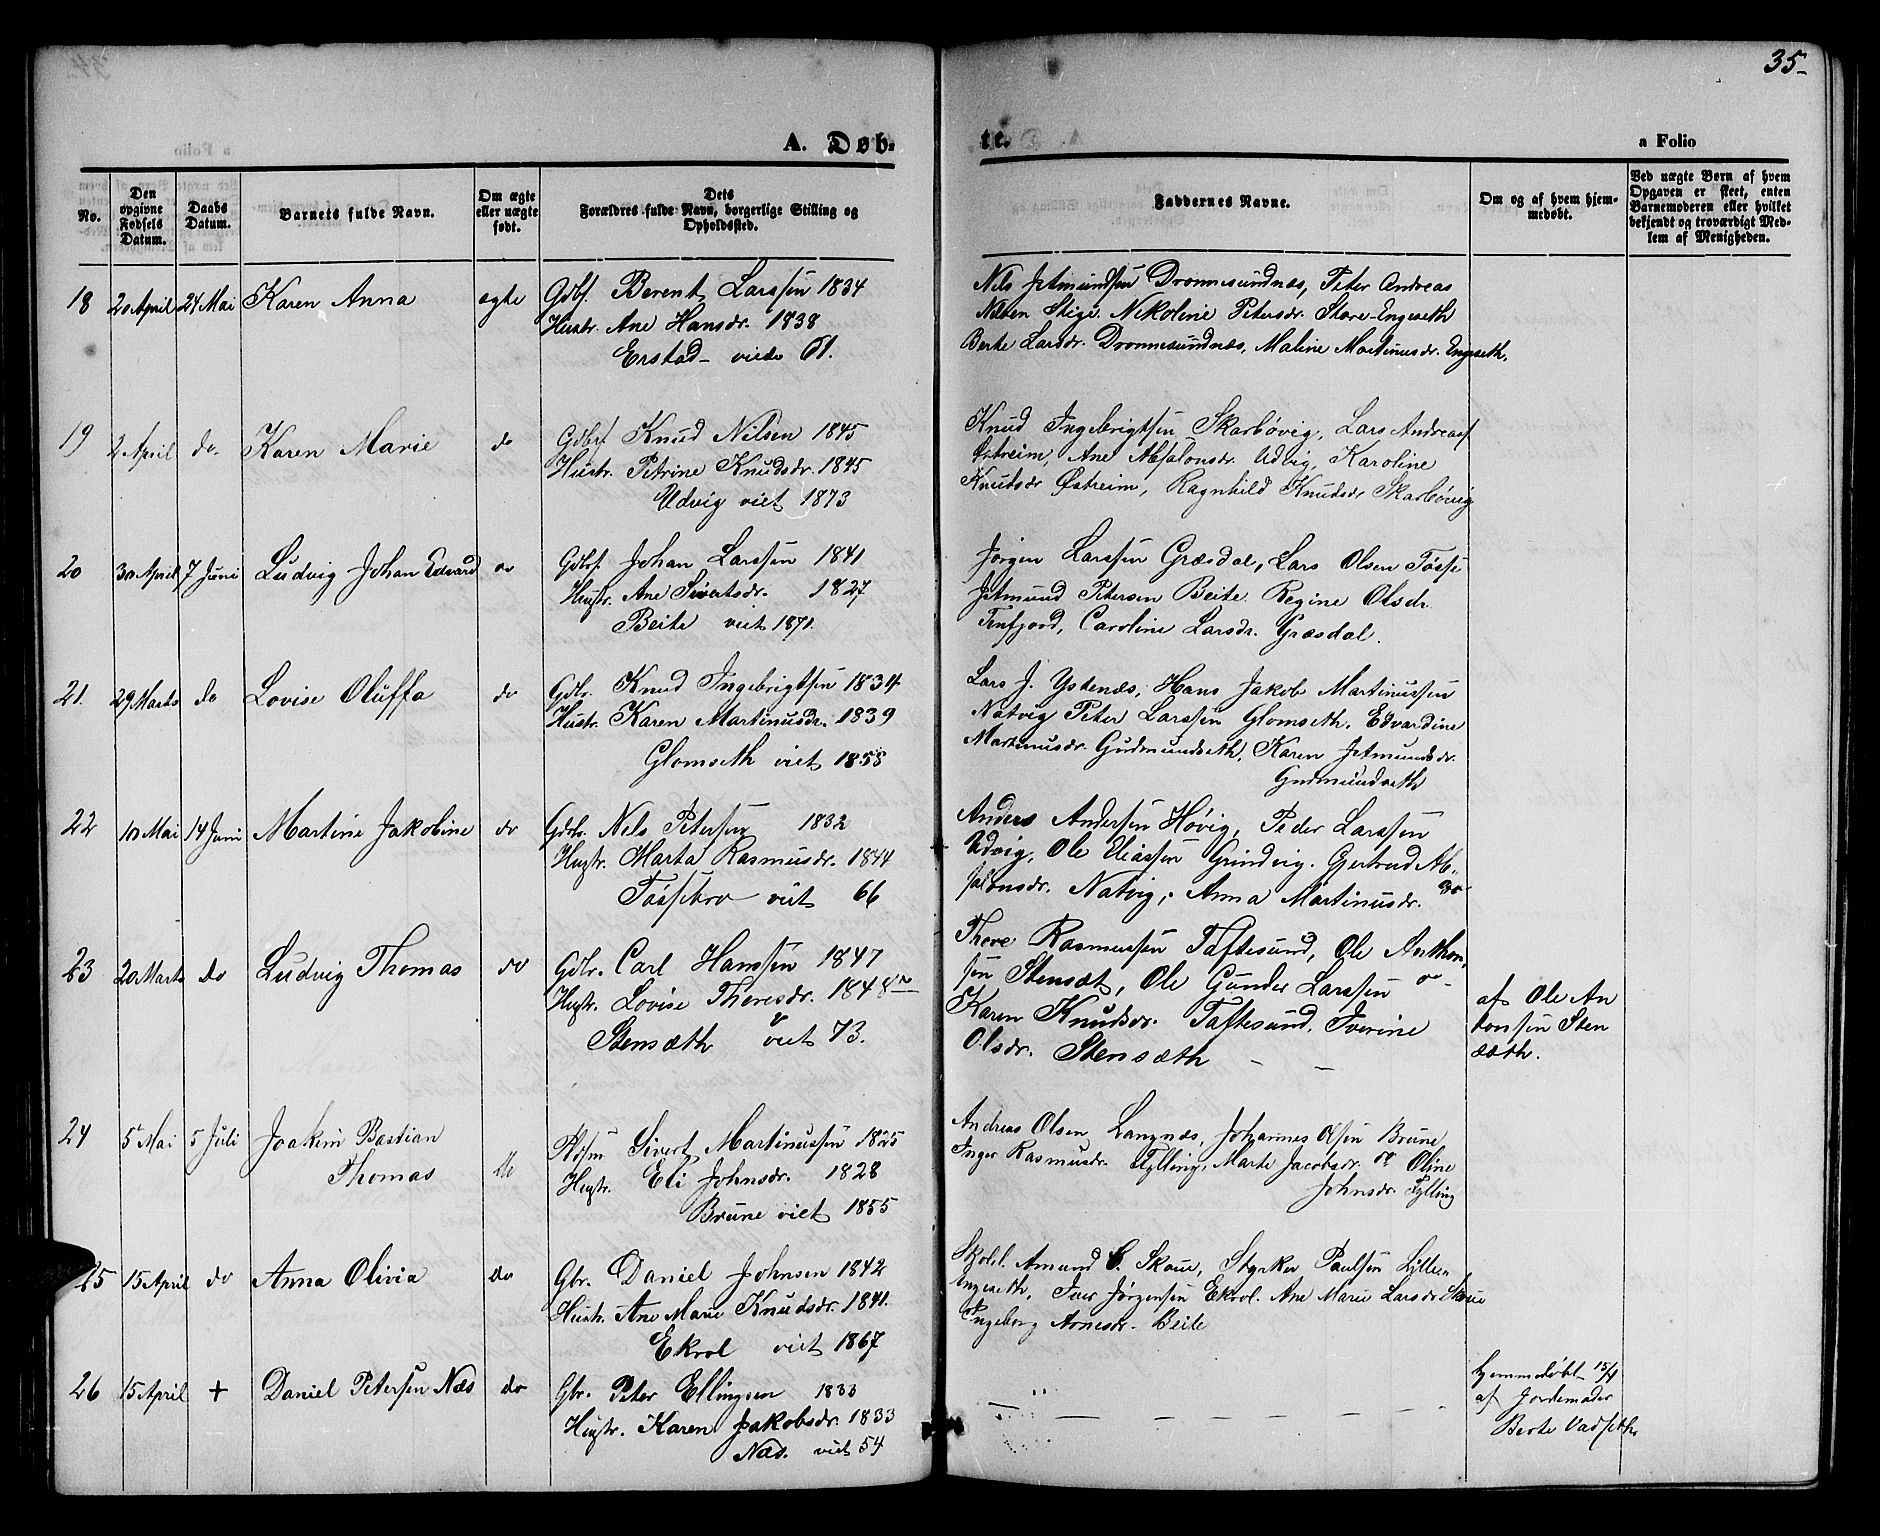 35-
A. Døb-
te.
a Folio
No.
Den opgivne Fødsels Datum.
Daabs Datum.
Barnets fulde Navn.
Om ægte eller uægte født.
Dets Forældres fulde Navn, borgerlige Stilling og Opholdssted.
Faddernes Navne.
Om og af hvem hjemmedøbt.
Ved uægte Børn af hvem Opgaven er skeet, enten Barnemoderen eller hvilket bekjendt og troværdigt Medlem af Menigheden.
18 20 April 24 Mai Karen Anna ægte Gdbf. Berent Larssen 1834
Hustr. Ane Hansdr. 1838
Erstad- viede 61.
Nels Jetmundsen Dronnesundnæs, Peter Andreas
Nelsen Stige. Nikoline Petersdr. Store-Engeseth
Berte Larsdr. Dronnesundnæs, Maline Martinusdr. Engeseth.
19 2 April do. Karen Marie do Gdbf Knud Nilsen 1845
Hustr. Petrine Knudsdr. 1845
Udvig viet 1873
Knud Ingebrigtsen Skarbövig, Lars Andreas
Østreim, Ane Absalonsdr. Udvig, Karoline
Knutsdr Østreim, Ragnhild Knudsdr Skarbövig
20 30 April 7 Juni Ludvig Johan Edvard do Gdbf. Johan Larssen 1841
Hustr. Ane Sivertsdr. 1827
Beite viet 1871.
Jørgen Larssen Græsdal, Lars Olsen Tøsse
Jetmund Petersen Beite. Regine Olsdr.
Tenfjord, Caroline Larsdr. Græsdal.
21. 29 Marts do Lovise Oluffa do Gdbr. Knud Ingebrigtsen 1834
Hustr. Karen Martinusdr. 1839
Glomseth viet 1858
Lars J. Ystenæs, Hans Jakob Martinussen
Natvig Peter Larssen Glomseth. Edvardine
Martinusdr. Gudmundseth, Karen Jetmundsdr.
Gudmundseth
22 10 Mai 14 Juni Martine Jakobine do Gdbr. Nels Petersen 1832
Hustr. Marta Rasmusdr. 1844
Tøssebro viet 66
Anders Andersen Høvig, Peder Larssen
Udvig, Ole Eliassen Grindvig. Gjertrud Ab-
salonsdr. Natvig, Anna Martinusdr. do
23 20 Marts do Ludvig Thomas do Gdbr. Carl Hanssen 1847
Hustr. Lovise Theresdr. 1848
Stensæth viet 73.
There Rasmussen Taftesund, Ole Anthon-
sen Stensæt, Ole Gunder Larssen do-
Karen Knudsdr. Taftesund, Iverine
Olsdr. Stensæth - -
af Ole An
tonsen Sten
sæth.
24 5 Mai 5 Juli Joakim Bastian
Thomas do Sivert Martinussen 1825
Hustr. Eli Johnsdr. 1828
Brune viet 1855
Andreas Olsen Langnæs, Johannes Olsen Brune
Inger Rasmusdr. Fylling, Marte Jacobsdr. do Oline
Johnsdr. Fylling
25 15 April do Anna Olivia do Gbr. Daniel Johnsen 1842
Hustr. Ane Marie Knudsdr. 1841.
Ekrol viet 1867
Skoll. Amund C. Skoue, Styrker Paulsen Lille-
engeseth, Iver Jørgensen Ekrol. Ane Marie Larsdr Skoue
Ingeborg Arnesdr. Beite
26 15 April + Daniel Petersen Næs do Gbr. Peter Ellingsen 1833
Hustr. Karen Jakobsdr. 1833
Næs. viet 54
- - - - - - -
hjemmedøbt 15/4
af Jordemoder
Berte Vadseth